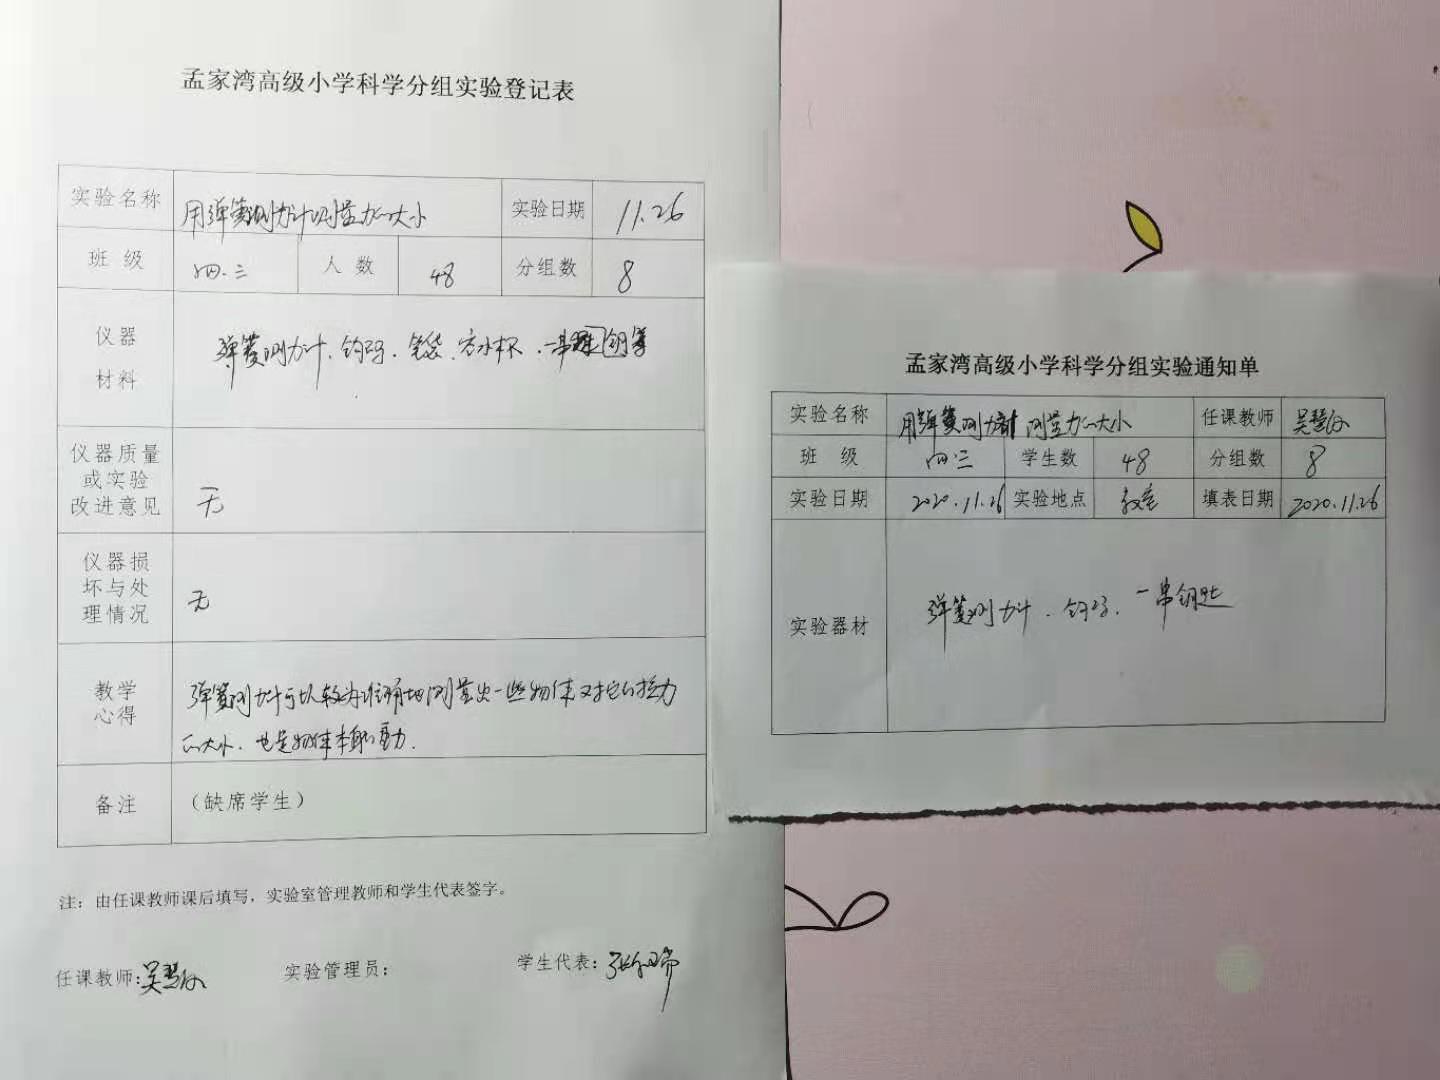 孟家湾高级小学科学分组实验登记表
实验名称 用弹簧测力计测量力的大小 实验日期 11.26
班 级 四.三 人 数 48 分组数 8
仪器
材料
弹簧测力计、钩码、笔袋、方水杯、一串
仪器质量
或实验
改进意见
无
仪器损
坏与处
理情况
无
教学
心得
弹簧测力计可以较为准确地测量出一些物体对它的拉力
的大小.也是物体本身的重力.
备注 (缺席学生)
注：由任课教师课后填写，实验室管理教师和学生代表签字。
任课教师:吴慧 实验管理员: 学生代表:张 瑞
孟家湾高级小学科学分组实验通知单
实验名称 用弹簧测力计测量力的大小 任课教师 吴慧
班 级 四三 学生数 48 分组数 8
实验日期 2020.11.26 实验地点 教室 填表日期 2020.11.26
实验器材 弹簧测力计、钩码、一串钥匙